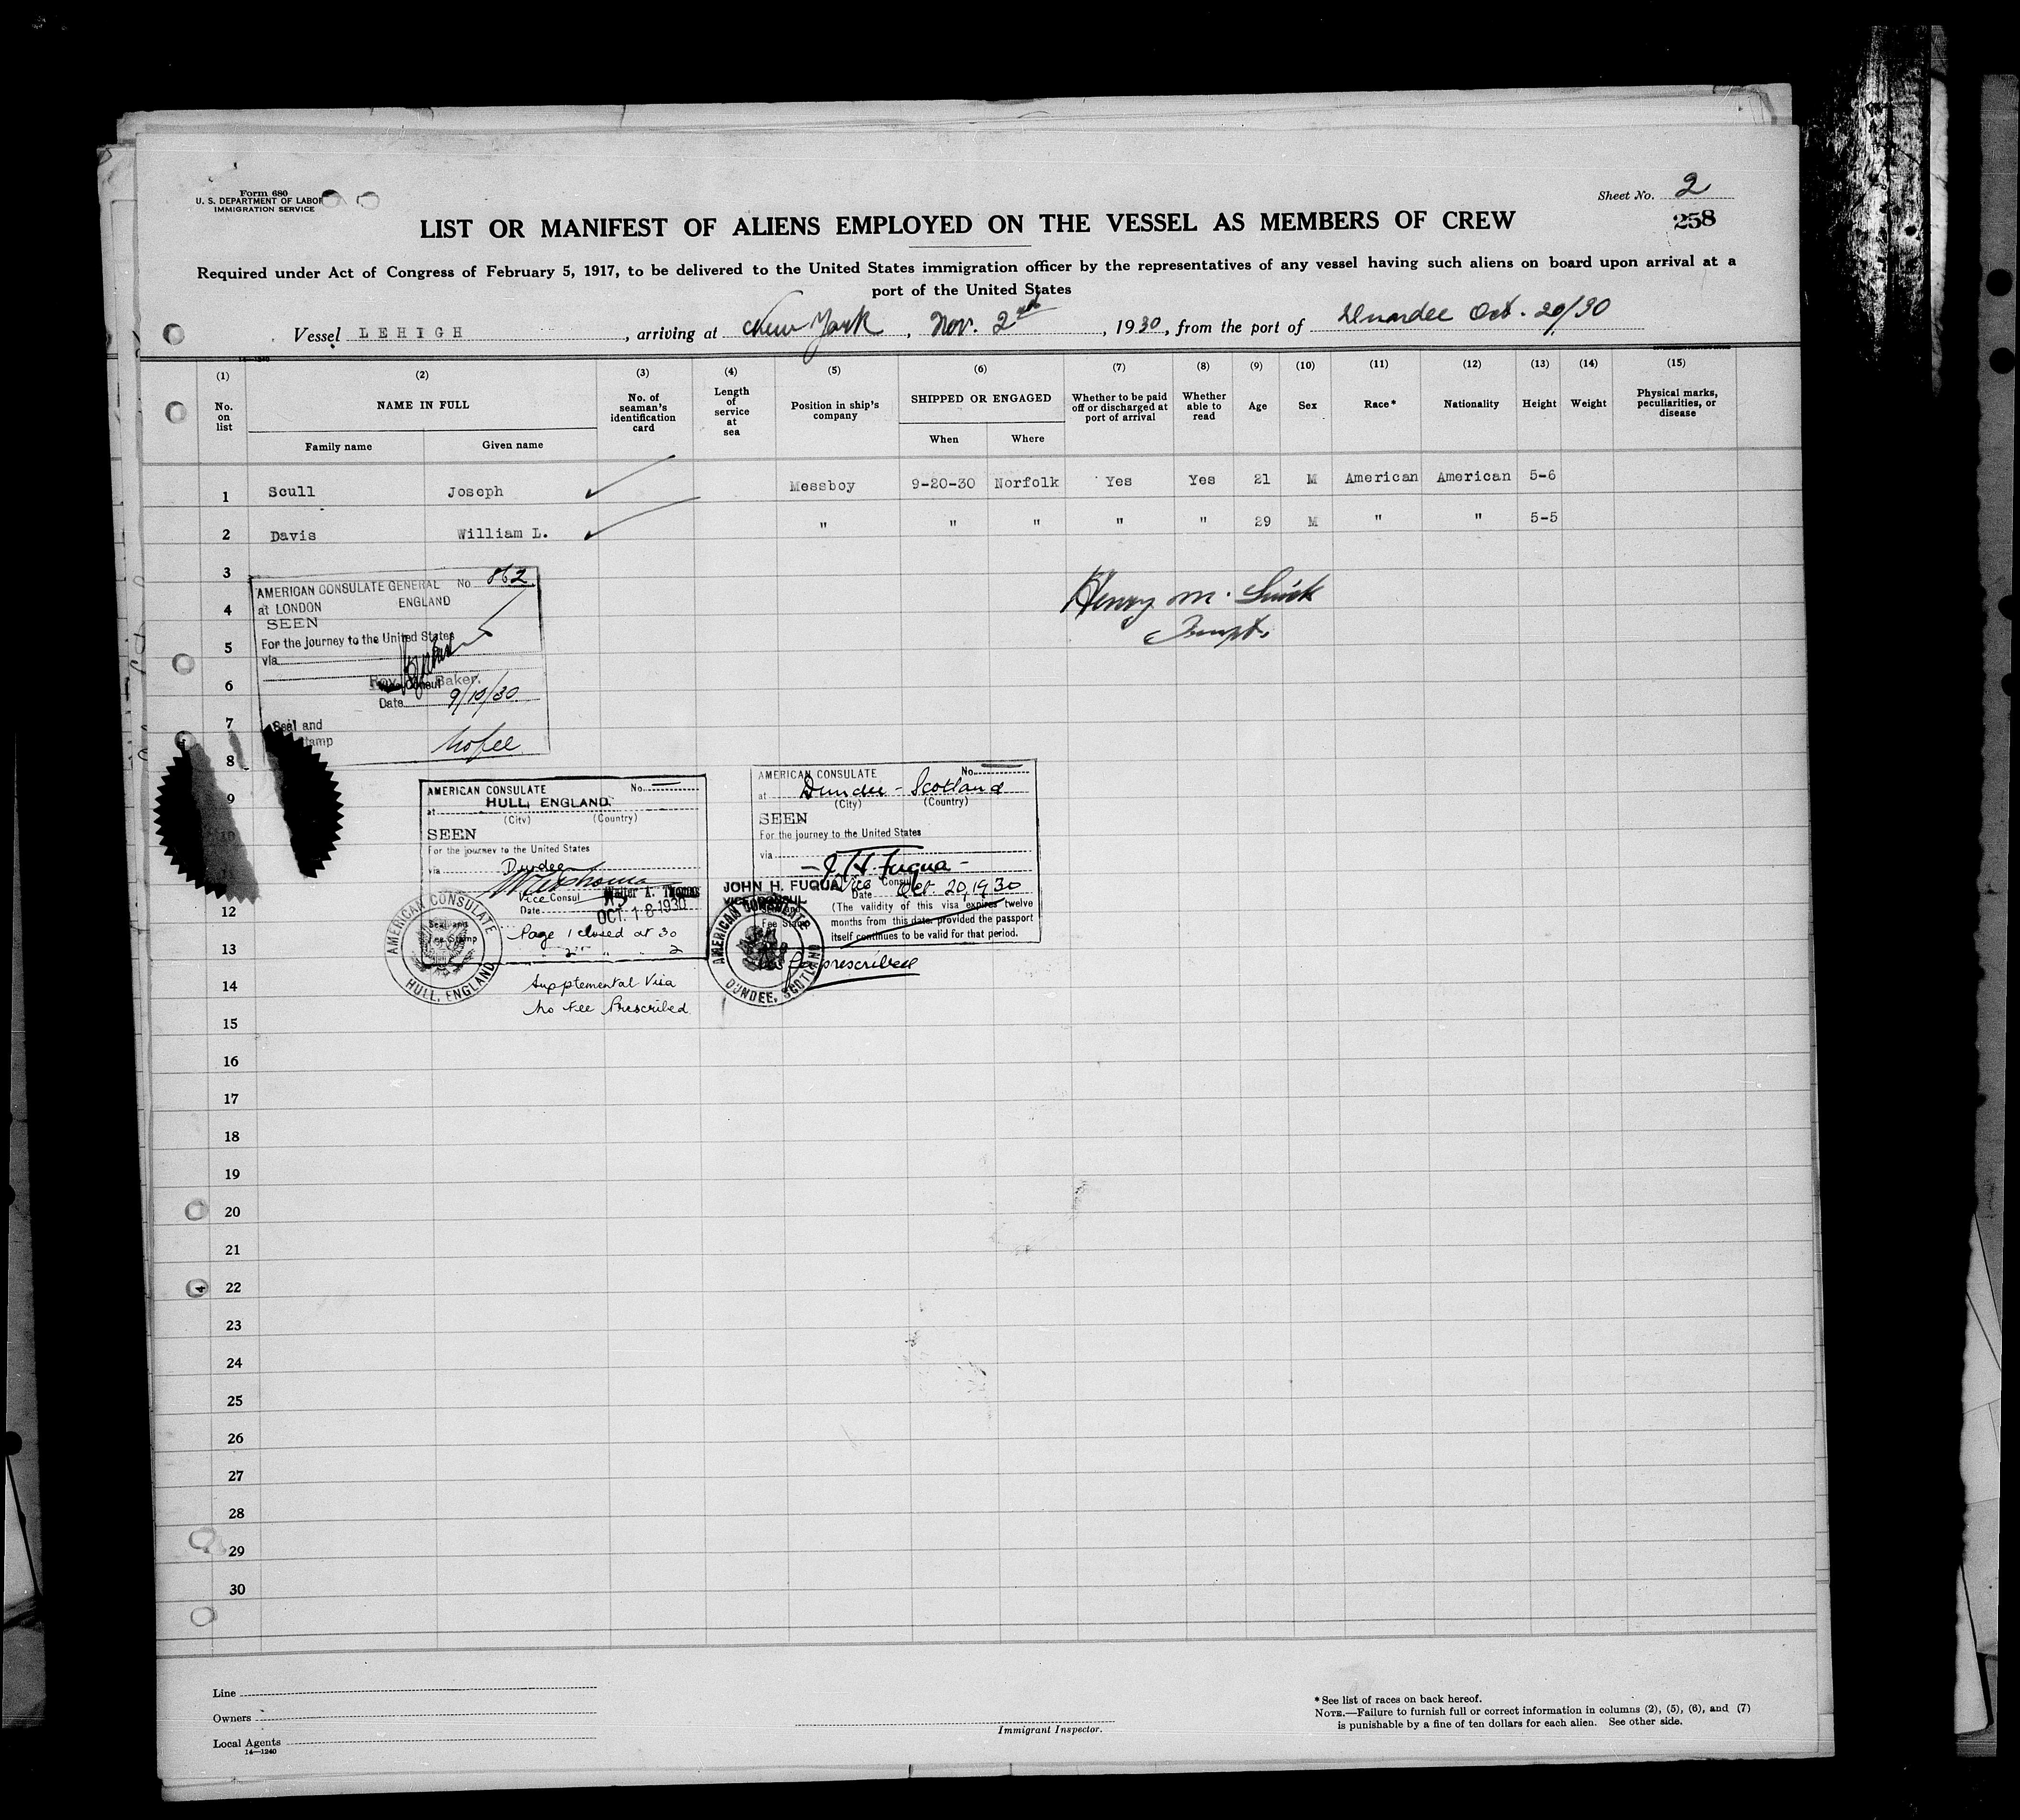 Form 680
U. S. DEPARTMENT OF LABOR
IMMIGRATION SERVICE
Sheet No. 2
258
LIST OR MANIFEST OF ALIENS EMPLOYED ON THE VESSEL AS MEMBERS OF CREW
Required under Act of Congress of February 5, 1917, to be delivered to the United States immigration officer by the representatives of any vessel having such aliens on board upon arrival at a
port of the United States
Vessel LEHIGH, arriving at New York, Nov. 2nd, 1930, from the port of Dundee Oct. 20/30
(1) (2) (3) (4) (5) (6) (7) (8) (9) (10) (11) (12) (13) (14) (15)
No. on list
NAME IN FULL
Family name Given name
No. of seaman's identification card
Length of service at sea
Position in ship's company
SHIPPED OR ENGAGED
When Where
Whether to be paid off or discharged at port of arrival
Whether able to read
Age
Sex
Race*
Nationality
Height
Weight
Physical marks, peculiarities, or disease
1 Scull Joseph Messboy 9-20-30 Norfolk Yes Yes 21 M American American 5-6
2 Davis William L. " " " " " 29 M " " 5-5
3
4
5
6
7
8
9
10
12
13
14
15
16
17
18
19
20
21
22
23
24
25
26
27
28
29
30
AMERICAN CONSULATE GENERAL No 862
at LONDON ENGLAND
SEEN
For the journey to the United States
via
Roy Baker.
Consul
Date 9/10/30
Seal and
Stamp
No fee
Henry M.
AMERICAN CONSULATE No.
at HULL, ENGLAND.
(City) (Country)
SEEN
For the journey to the United States
via Dundee
Walter A.
Vice Consul
Date OCT. 18 1930
Seal and
Fee Stamp
AMERICAN CONSULATE
HULL, ENGLAND
Page 1 closed at 30
" 2 " " 2
Supplemental Visa
No Fee Prescribed
AMERICAN CONSULATE No.
at Dundee - Scotland
(City) (Country)
SEEN
For the journey to the United States
via
J H. Fuqua
JOHN H. FUQUA Vice Consul
VICE CONSUL
Date Oct. 20, 1930
(The validity of this visa expires twelve
months from this date provided the passport
itself continues to be valid for that period.
Fee Stamp
AMERICAN CONSULATE
DUNDEE, SCOTLAND
prescribed
Line
Owners
Local Agents
14—1240
Immigrant Inspector.
* See list of races on back hereof.
NOTE.—Failure to furnish full or correct information in columns (2), (5), (6), and (7)
is punishable by a fine of ten dollars for each alien. See other side.